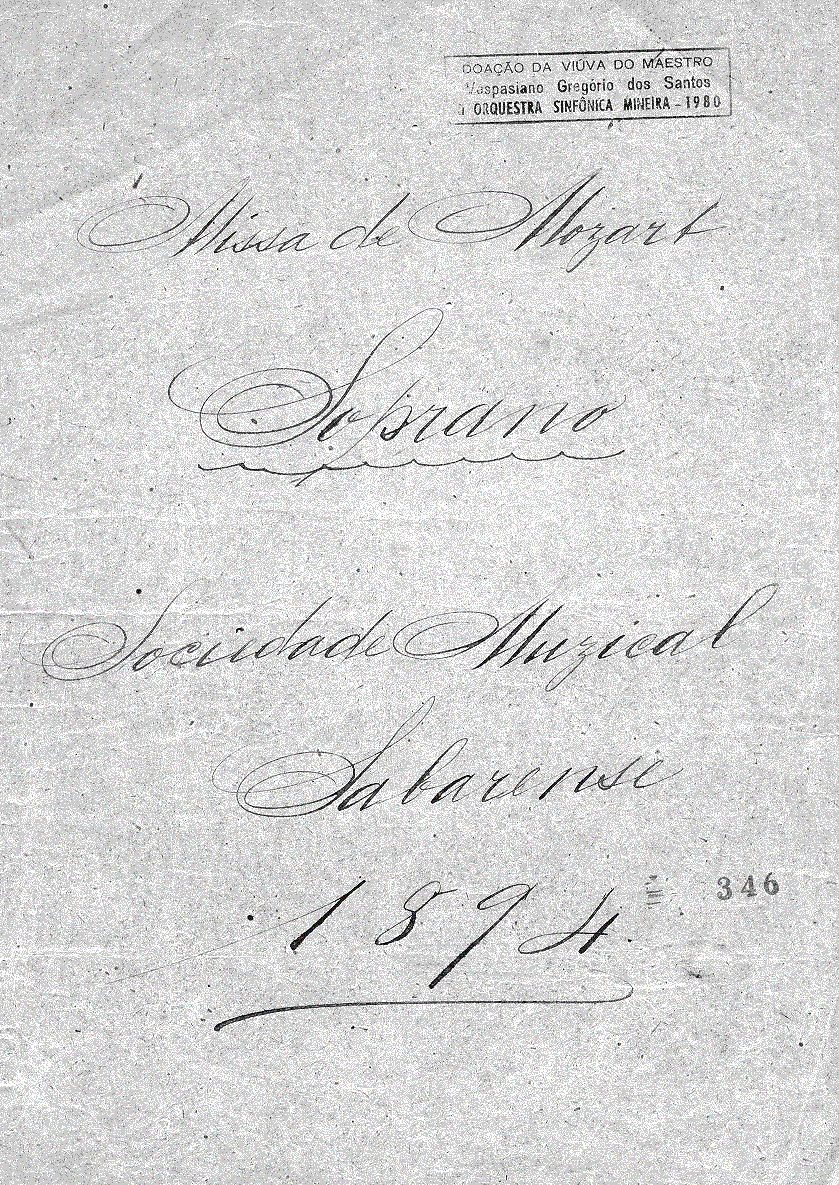 DOAÇÃO DA VIÚVA DO MAESTRO
Vespasiano Gregório dos Santos
à ORQUESTRA SINFÔNICA MINEIRA - 1980
Missa de Mozart
Soprano
Sociedade Muzical
Sabarense
1894
346